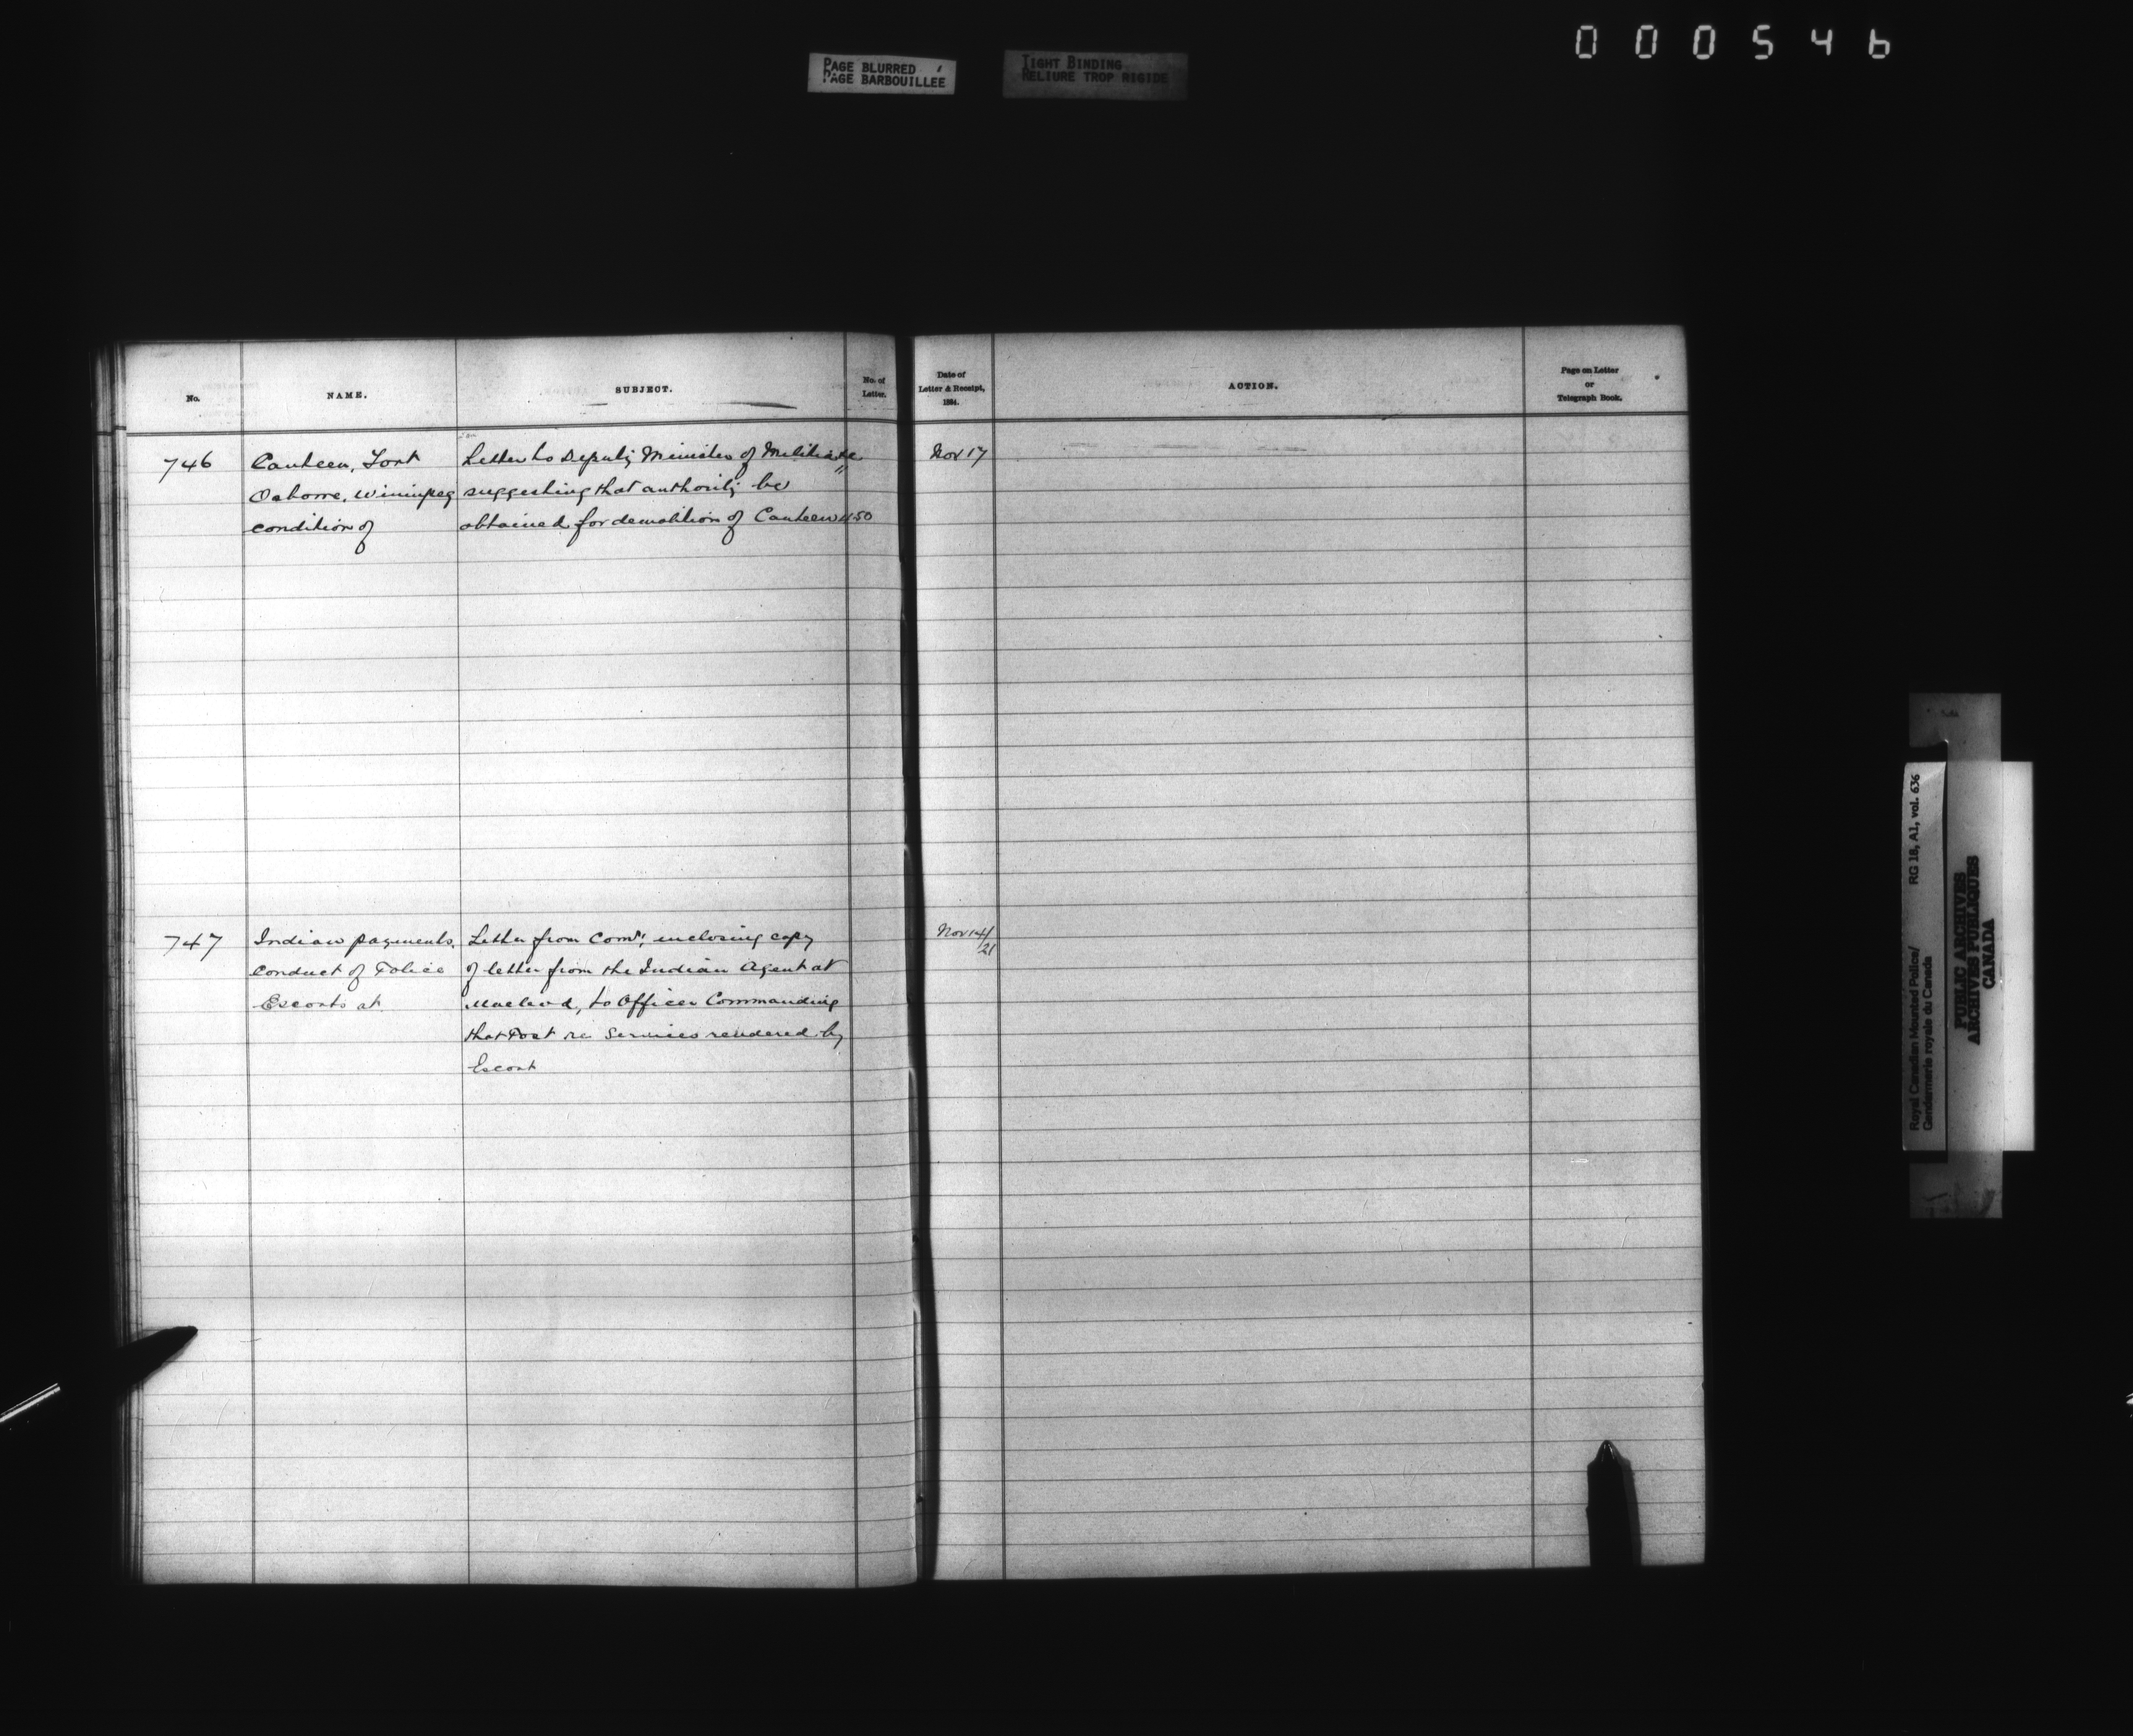 000546
PAGE BLURRED
PAGE BARBOUILLEE
TIGHT BINDING
RELIURE TROP RIGIDE
No.
NAME.
SUBJECT.
No. of
Letter.
Date of
Letter & Receipt,
1884.
ACTION.
Page on Letter
or
Telegraph Book.
746
Canteen, Fort
Osborne, Winnipeg
condition of
Letter to Deputy Minister of Militia
suggesting that authority be
obtained for demolition of Canteen 1150
Nov 17
747
Indian payments.
Conduct of Police
Escorts at
Letter from Comr, enclosing copy
of letter from the Indian Agent at
Macleod, to Officer Commanding
that Post re Services rendered by
Escort
Nov 14/21
Royal Canadian Mounted Police/
Gendarmerie royale du Canada
RG 18, A1, vol. 636
PUBLIC ARCHIVES
ARCHIVES PUBLIQUES
CANADA